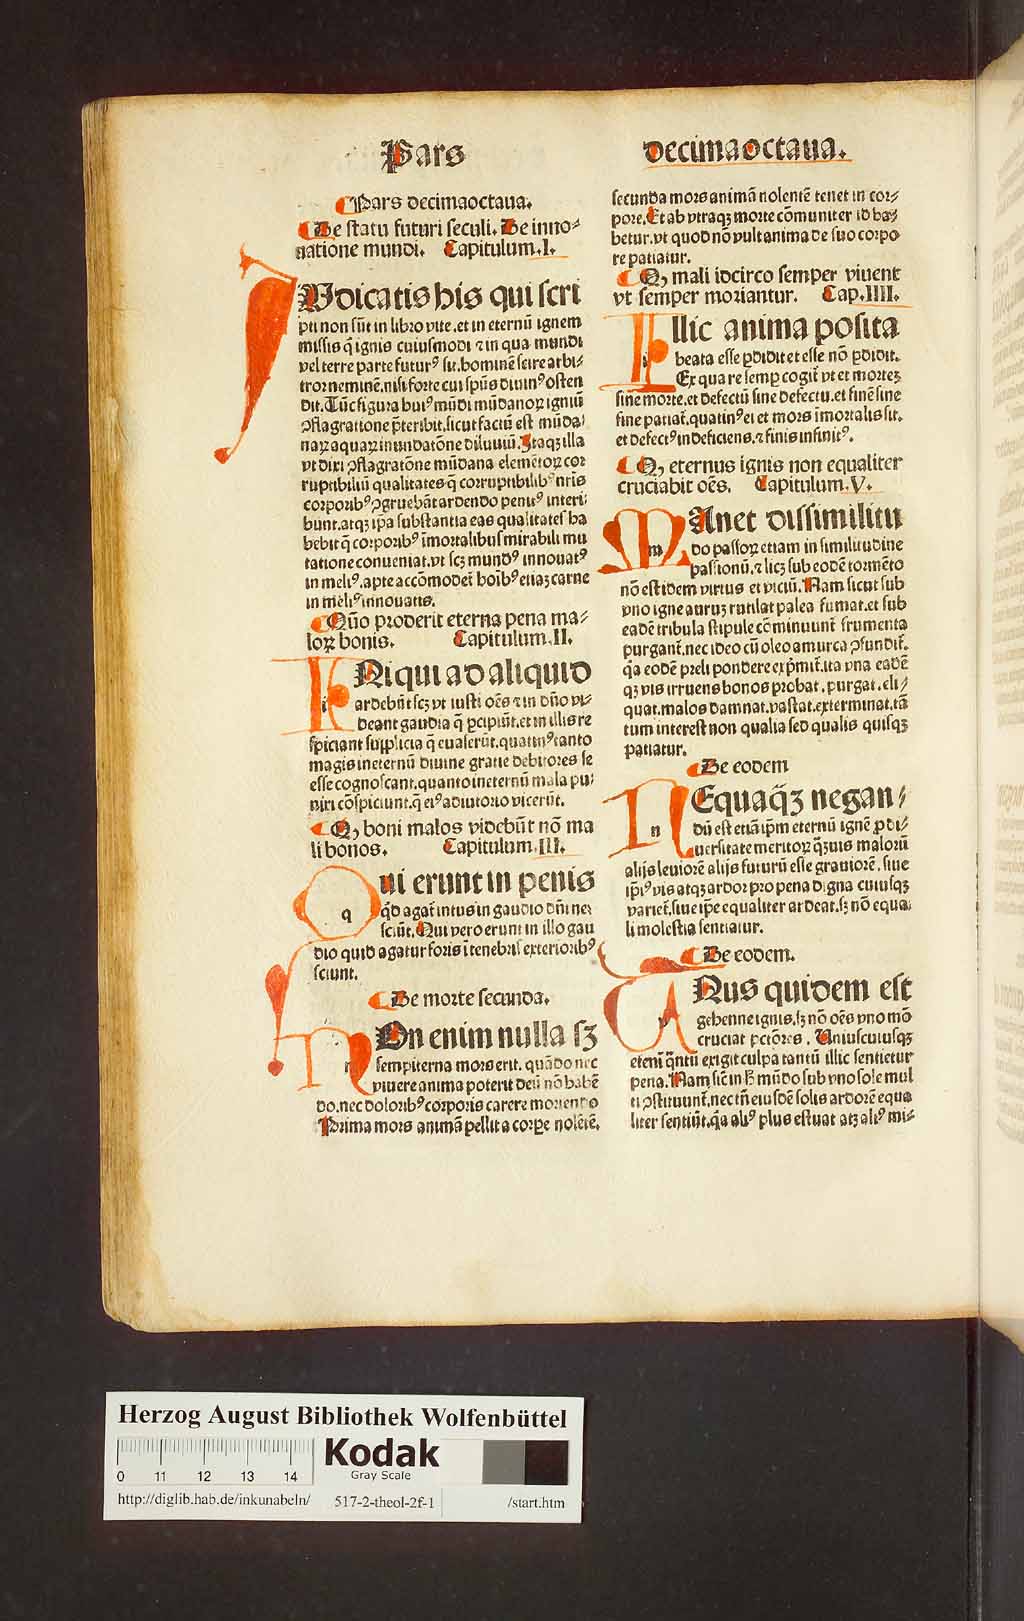 Pars
decimaoctaua.
Pars decimaoctaua.
De statu futuri seculi. De inno-
uatione mundi. Capitulum .I.
IUdicatis his qui scri
pti non sūt in libro vite. et in eternū ignem
missis q̄ ignis cuiusmodi ⁊ in qua mundi
vel terre parte futurꝰ sit. hominē scire arbi-
tror neminē. nisi forte cui spūs diuinꝰ osten
dit. Tūc figura huiꝰ mūdi mūdanoꝝ igniū
ꝯflagratione p̄teribit. sicut factū est mūda
naꝝ aquaꝝ inundatōne diluuiū. Itaqꝫ illa
vt dixi ꝯflagratōne mūdana elemētoꝝ cor
ruptibiliū qualitates q̄ corruptibilibꝰ nr̄is
corporibꝰ ꝯgruebāt ardendo penitꝰ interi
bunt. atqꝫ ip̄a substantia eas qualitates ha
bebit q̄ corporibꝰ īmortalibus mirabili mu
tatione conueniat. vt scꝫ mundꝰ innouatꝰ
in meliꝰ. apte accōmodet̄ hoībꝰ etiaꝫ carne
in meliꝰ innouatis.
Qūo proderit eterna pena ma-
loꝝ bonis. Capitulum .II.
INi qui ad aliquid
ardebūt scꝫ vt iusti oēs ⁊ in dn̄o vi-
deant gaudia q̄ ꝑcipiūt. et in illis re
spiciant supplicia q̄ euaserūt. quatinꝰ tanto
magis in eternū diuine gratie debitores se
esse cognoscant. quanto in eternū mala pu
niri cōspiciunt. q̄ eiꝰ adiutorio vicerūt.
Q, boni malos videbūt nō ma
li bonos. Capitulum .III.
Qui erunt in penis
q̇d agat̄ intus in gaudio dn̄i nes
sciūt. Qui vero erunt in illo gau
dio quid agatur foris ī tenebris exterioribꝰ
sciunt.
De morte secunda.
NOn enim nulla sꝫ
sempiterna mors erit. quādo nec
viuere anima poterit deū nō habē
do. nec doloribꝰ corporis carere moriendo
Prima mors animā pellit a corpe nolētē.
secunda mors animā nolentē tenet in cor-
pore. Et ab vtraqꝫ morte cōmuniter id ha-
betur. vt quod nō vult anima de suo corpo
re patiatur.
Q, mali idcirco semper viuent
vt semper moriantur. Cap. IIII.
Illic anima posita
beata esse ꝑdidit et esse nō ꝑdidit.
Ex qua re semꝑ cogit̄ vt et morteꝫ
sine morte. et defectū sine defectu. et finē sine
fine patiat̄. quatinꝰ ei et mors īmortalis sit.
et defectꝰ indeficiens. ⁊ finis infinitꝰ.
Q, eternus ignis non equaliter
cruciabit oēs. Capitulum .V.
MAnet dissimilitu
do passoꝝ etiam in similitudine
passionū. ⁊ licꝫ sub eodē tormēto
nō est idem virtus et viciū. Nam sicut sub
vno igne auruꝫ rutilat palea fumat. et sub
eadē tribula stipule cōminuunt̄ frumenta
purgant̄. nec ideo cū oleo amurca ꝯfundit̄.
q̇a eodē preli pondere exp̄mit̄. ita vna eadē
qꝫ vis irruens bonos probat. purgat. eli-
quat. malos damnat. vastat. exterminat. tā
tum interest non qualia sed qualis quisqꝫ
patiatur.
De eodem
NEquaq̄ꝫ negan-
dū est etiā ip̄m eternū ignē ꝓ di-
uersitate meritoꝝ q̄ꝫuis maloꝝ
alijs leuiorē alijs futurū esse grauiorē. siue
ip̄iꝰ vis atqꝫ ardor pro pena digna cuiusqꝫ
variet̄. siue ip̄e equaliter ardeat. sꝫ nō equa
li molestia sentiatur.
De eodem.
UNus quidem est
gehenne ignis. sꝫ nō oēs vno mō
cruciat pctōres. Uniuscuiusqꝫ
eteni q̄ntū exigit culpa tantū illic sentietur
pena. Nam sic̄ in ħ mūdo sub vno sole mul
ti ꝯstituunt̄. nec tn̄ eiusdē solis ardorē equa
liter sentiūt. q̇a aliꝰ plus estuat atqꝫ aliꝰ mi-
Herzog August Bibliothek Wolfenbüttel
Kodak
Gray Scale
0 11 12 13 14
http://diglib.hab.de/inkunabeln/ 517-2-theol-2f-1 /start.htm